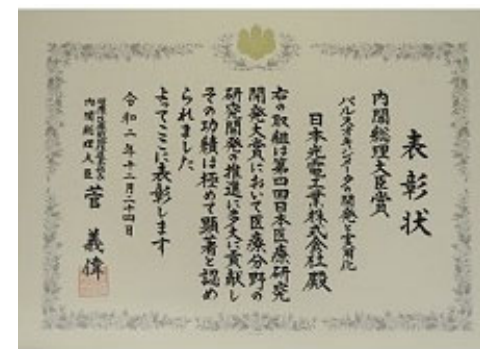 表彰状
内閣総理大臣賞
パルスオキシメータの開発と実用化
日本光電工業株式会社殿
右の取組は第四回日本医療研究
開発大賞において医療分野の
研究開発の推進に多大に貢献し
その功績は極めて顕著と認め
られました
よってここに表彰します
令和二年十二月二十四日
内閣総理大臣 菅 義偉